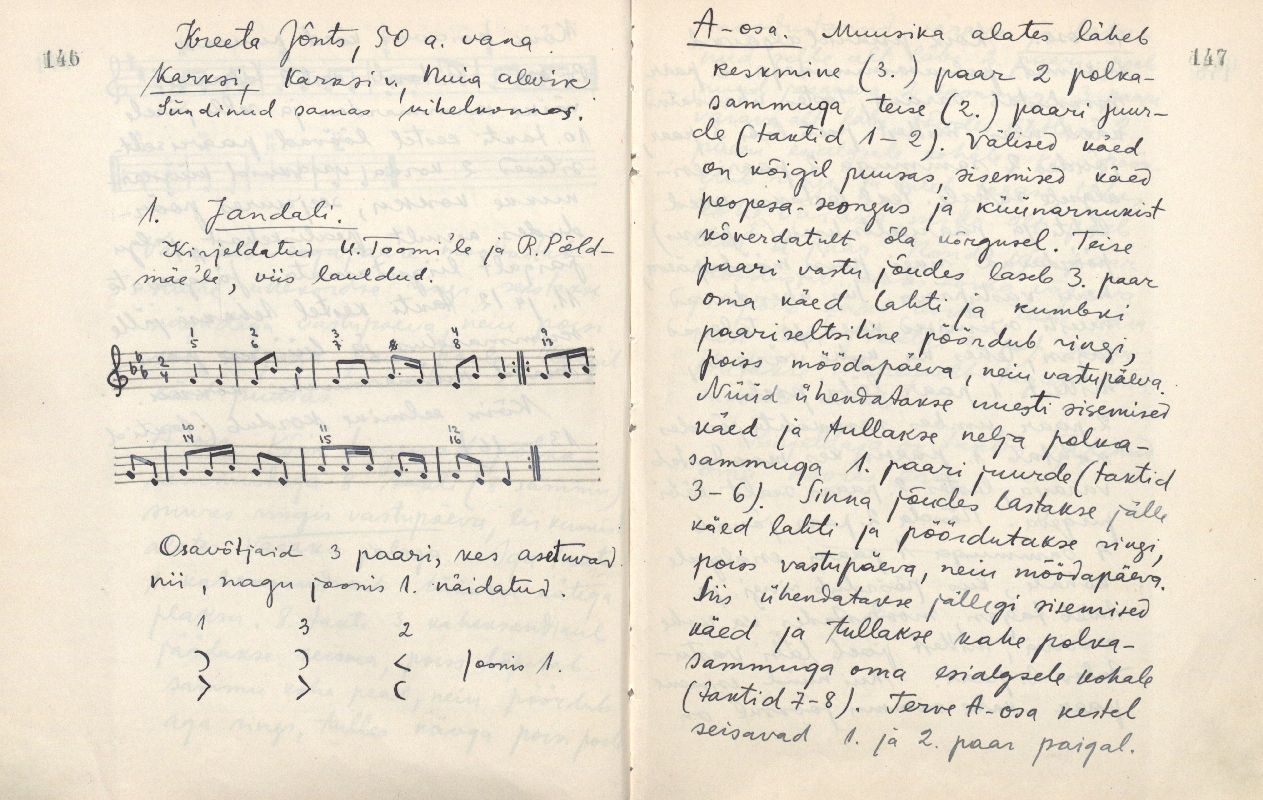 146
Kreeta Jõnts, 50 a. vana.
Karksi, Karksi v., Nuia alevik
Sündinud samas kihelkonnas.
1. Jandali.
Kirjeldatud U. Toomi'le ja R. Põld-
mäe'le, viis lauldud.
1 2 3 4 9
5 6 7 8 13
2
4
10 11 12
14 15 16
Osavõtjaid 3 paari, kes asetuvad
nii, nagu joonis 1. näidatud.
1 3 2
Joonis 1.
147
A-osa. Muusika alates läheb
keskmine (3.) paar 2 polka-
sammuga teise (2.) paari juur-
de (taktid 1-2). Välised käed
on kõigil puusas, sisemised käed
peopesa-seongus ja küünarnukist
kõverdatult õla kõrgusel. Teise
paari vastu jõudes laseb 3. paar
oma käed lahti ja kumbki
paariseltsiline pöördub ringi,
poiss möödapäeva, neiu vastupäeva.
Nüüd ühendatakse uuesti sisemised
käed ja tullakse nelja polka-
sammuga 1. paari juurde (taktid
3-6). Sinna jõudes lastakse jälle
käed lahti ja pöördutakse ringi,
poiss vastupäeva, neiu möödapäeva.
Siis ühendatakse jällegi sisemised
käed ja tullakse kahe polka-
sammuga oma esialgsele kohale
(taktid 7-8). Terve A-osa kestel
seisavad 1. ja 2. paar paigal.